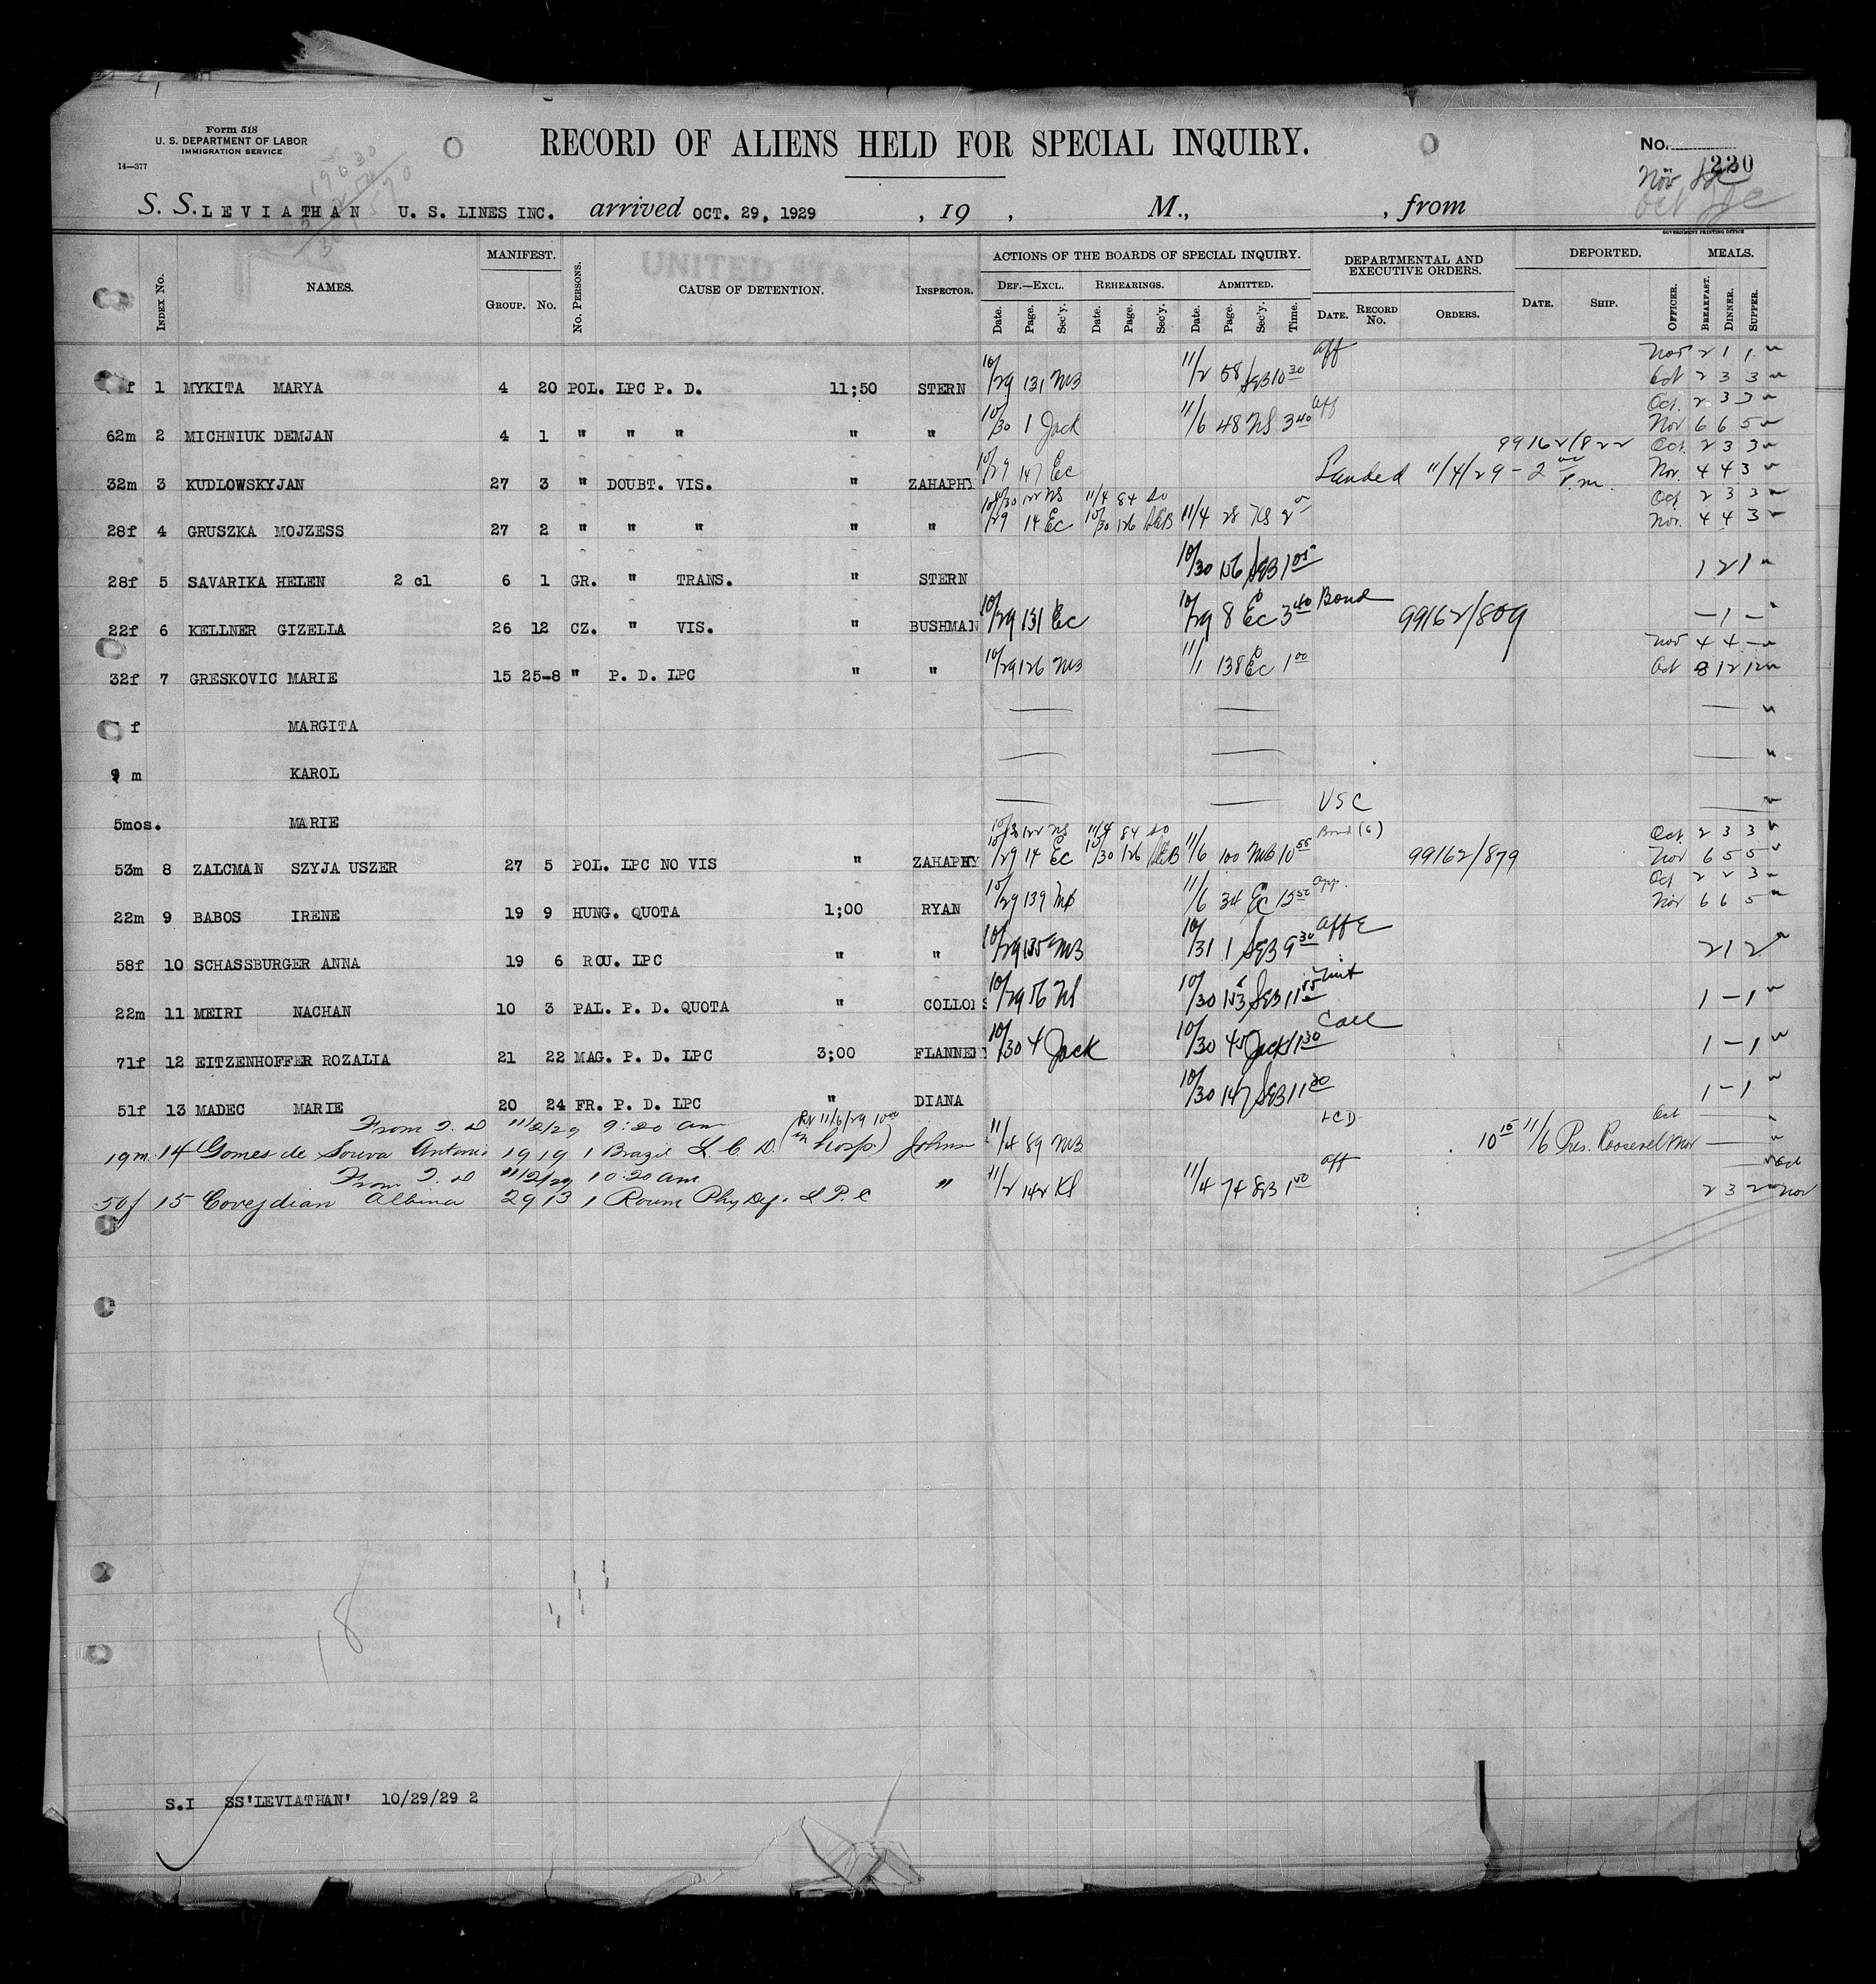 Form 518
U. S. DEPARTMENT OF LABOR
IMMIGRATION SERVICE
14—377
RECORD OF ALIENS HELD FOR SPECIAL INQUIRY.
No.
230
Nov
Oct
S. S. LEVIATHAN U. S. LINES INC. arrived OCT. 29, 1929 , 19 , M., , from
GOVERNMENT PRINTING OFFICE
INDEX No. NAMES. MANIFEST. GROUP. No. No. PERSONS. CAUSE OF DETENTION. INSPECTOR. ACTIONS OF THE BOARDS OF SPECIAL INQUIRY. DEF.—EXCL. REHEARINGS. ADMITTED. Date. Page. Sec'y. Date. Page. Sec'y. Date. Page. Sec'y. Time. DEPARTMENTAL AND EXECUTIVE ORDERS. DATE. RECORD No. ORDERS. DEPORTED. DATE. SHIP. OFFICER. MEALS. BREAKFAST. DINNER. SUPPER.
Nov 2 1 1
f 1 MYKITA MARYA 4 20 POL. LPC P. D. 11;50 STERN 10/29 131 MB 11/2 58 SEB 10 30 aff Oct 2 3 3
Oct. 2 3 3
62m 2 MICHNIUK DEMJAN 4 1 " " " " " 10/30 1 Jack 11/6 48 NS 3 40 aff Nov 6 6 5
99162/822 Oct. 2 3 3
32m 3 KUDLOWSKYJAN 27 3 " DOUBT. VIS. " ZAHAPHY 10/29 147 EC Landed 11/4/29 - 2 P.m. Nov. 4 4 3
10/30 122 NS 11/4 84 So Oct 2 3 3
28f 4 GRUSZKA MOJZESS 27 2 " " " " " 10/29 14 EC 10/30 126 SEB 11/4 28 KS 2 Nov. 4 4 3
28f 5 SAVARIKA HELEN 2 cl 6 1 GR. " TRANS. " STERN 10/30 156 SEB 1 05 1 2 1
22f 6 KELLNER GIZELLA 26 12 CZ. " VIS. " BUSHMAN 10/29 131 EC 10/29 8 EC 3 40 Bond 99162/809 — 1 —
Nov 4 4 —
32f 7 GRESKOVIC MARIE 15 25-8 " P. D. LPC " " 10/29 126 MB 11/1 138 EC 1 00 Oct 8 12 12
f MARGITA
9 m KAROL
5mos. MARIE USC
10/30 122 NS 11/4 84 So Bond (6) Oct. 2 3 3
53m 8 ZALCMAN SZYJA USZER 27 5 POL. LPC NO VIS " ZAHAPHY 10/29 14 EC 10/30 126 SEB 11/6 100 MB 10 55 99162/879 Nov 6 5 5
Oct 2 2 3
22m 9 BABOS IRENE 19 9 HUNG. QUOTA 1;00 RYAN 10/29 139 MB 11/6 34 EC app. Nov 6 6 5
58f 10 SCHASSBURGER ANNA 19 6 ROU. LPC " " 10/29 135 MB 10/31 1 SEB 9 30 aff 2 1 2
22m 11 MEIRI NACHAN 10 3 PAL. P. D. QUOTA " COLLONS 10/29 56 NS 10/30 153 SEB 11 55 1 — 1
71f 12 EITZENHOFFER ROZALIA 21 22 MAG. P. D. LPC 3;00 FLANNERY 10/30 4 Jack 10/30 45 Jack 1 30 Call 1 — 1
51f 13 MADEC MARIE 20 24 FR. P. D. LPC " DIANA 10/30 147 SEB 11 20 1 — 1
From T. D 11/2/29 9:20 am (Rx 11/6/29 10 00 in hosp.) LCD Oct
19m 14 Gomes de Souva Antonio 19 19 1 Brazil L. C. D. Johns 11/4 89 MB 10 15 11/6 Pres. Roosevelt Nov
From T. D 11/2/29 10:20 am aff Oct
50f 15 Covejdian Albina 29 13 1 Roum Phy Def. L P. C " 11/2 142 KS 11/4 74 SEB 1 00 2 3 2 Nov
18
S.I SS'LEVIATHAN' 10/29/29 2